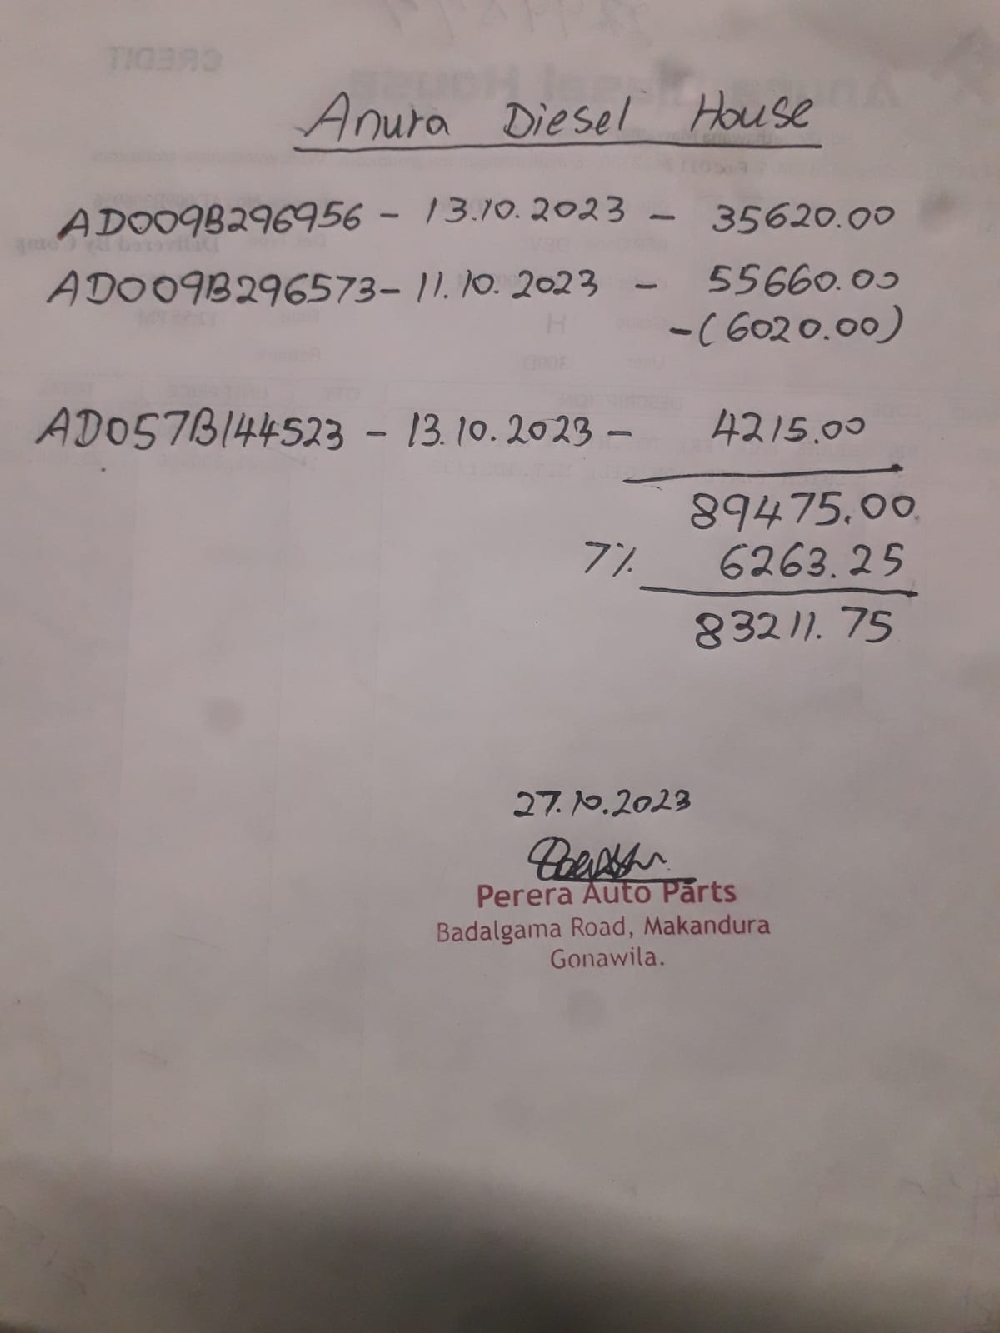 Anura Diesel House
AD009B296956 - 13.10.2023 - 35620.00
AD009B296573 - 11.10.2023 - 55660.00
-(6020.00)
AD057B144523 - 13.10.2023 - 4215.00
89475.00
7% 6263.25
83211.75
27.10.2023
Perera Auto Parts
Badalgama Road, Makandura
Gonawila.